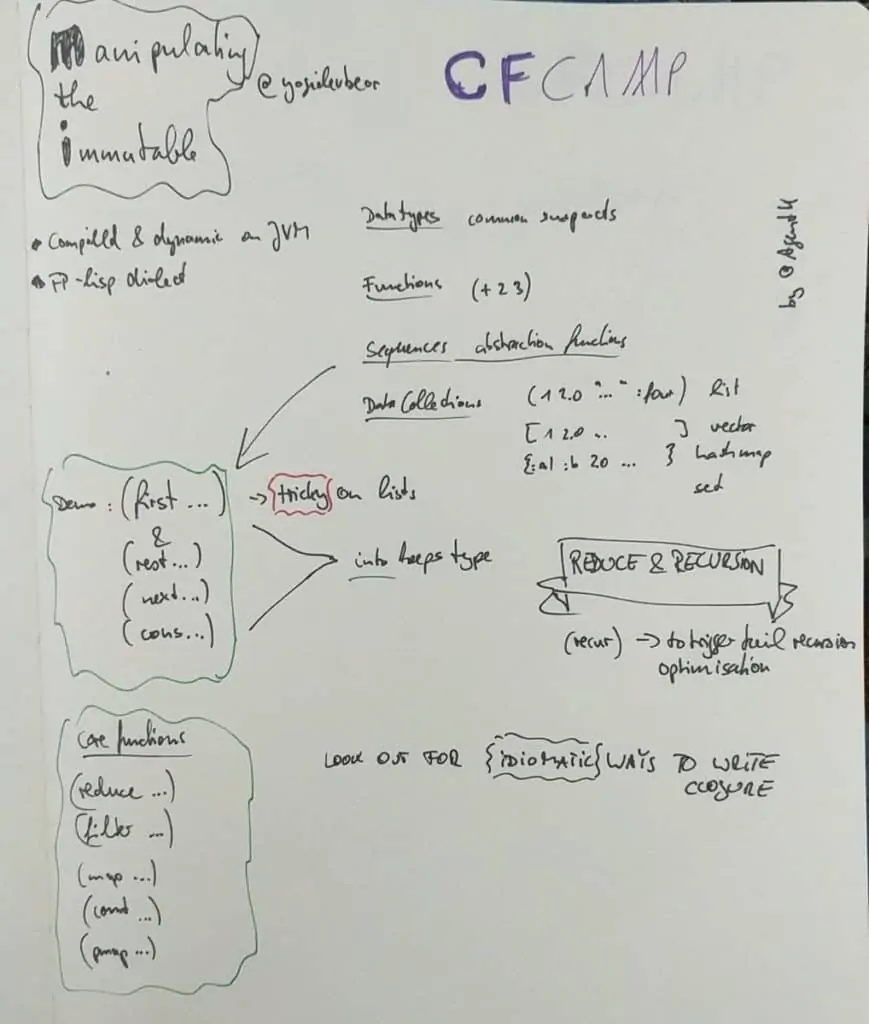 Manipulating
the
immutable
CFCAMP
• Compiled & dynamic on JVM
• FP-lisp dialect
Datatypes common suspects
Functions (+ 2 3)
Sequences abstraction functions
Data Collections (1 2.0 "..." :four) list
[1 2.0 .. ] vector
{:a1 :b 20 ... } hashmap
set
Demo: (first ...) → {tricky} on lists
&
(rest...)
(next...)
(cons...)
into keeps type
REDUCE & RECURSION
(recur) → to trigger tail recursion
optimisation
core functions
(reduce ...)
(filter ...)
(map ...)
(cond ...)
(pmap ...)
LOOK OUT FOR {IDIOMATIC} WAYS TO WRITE
CLOJURE